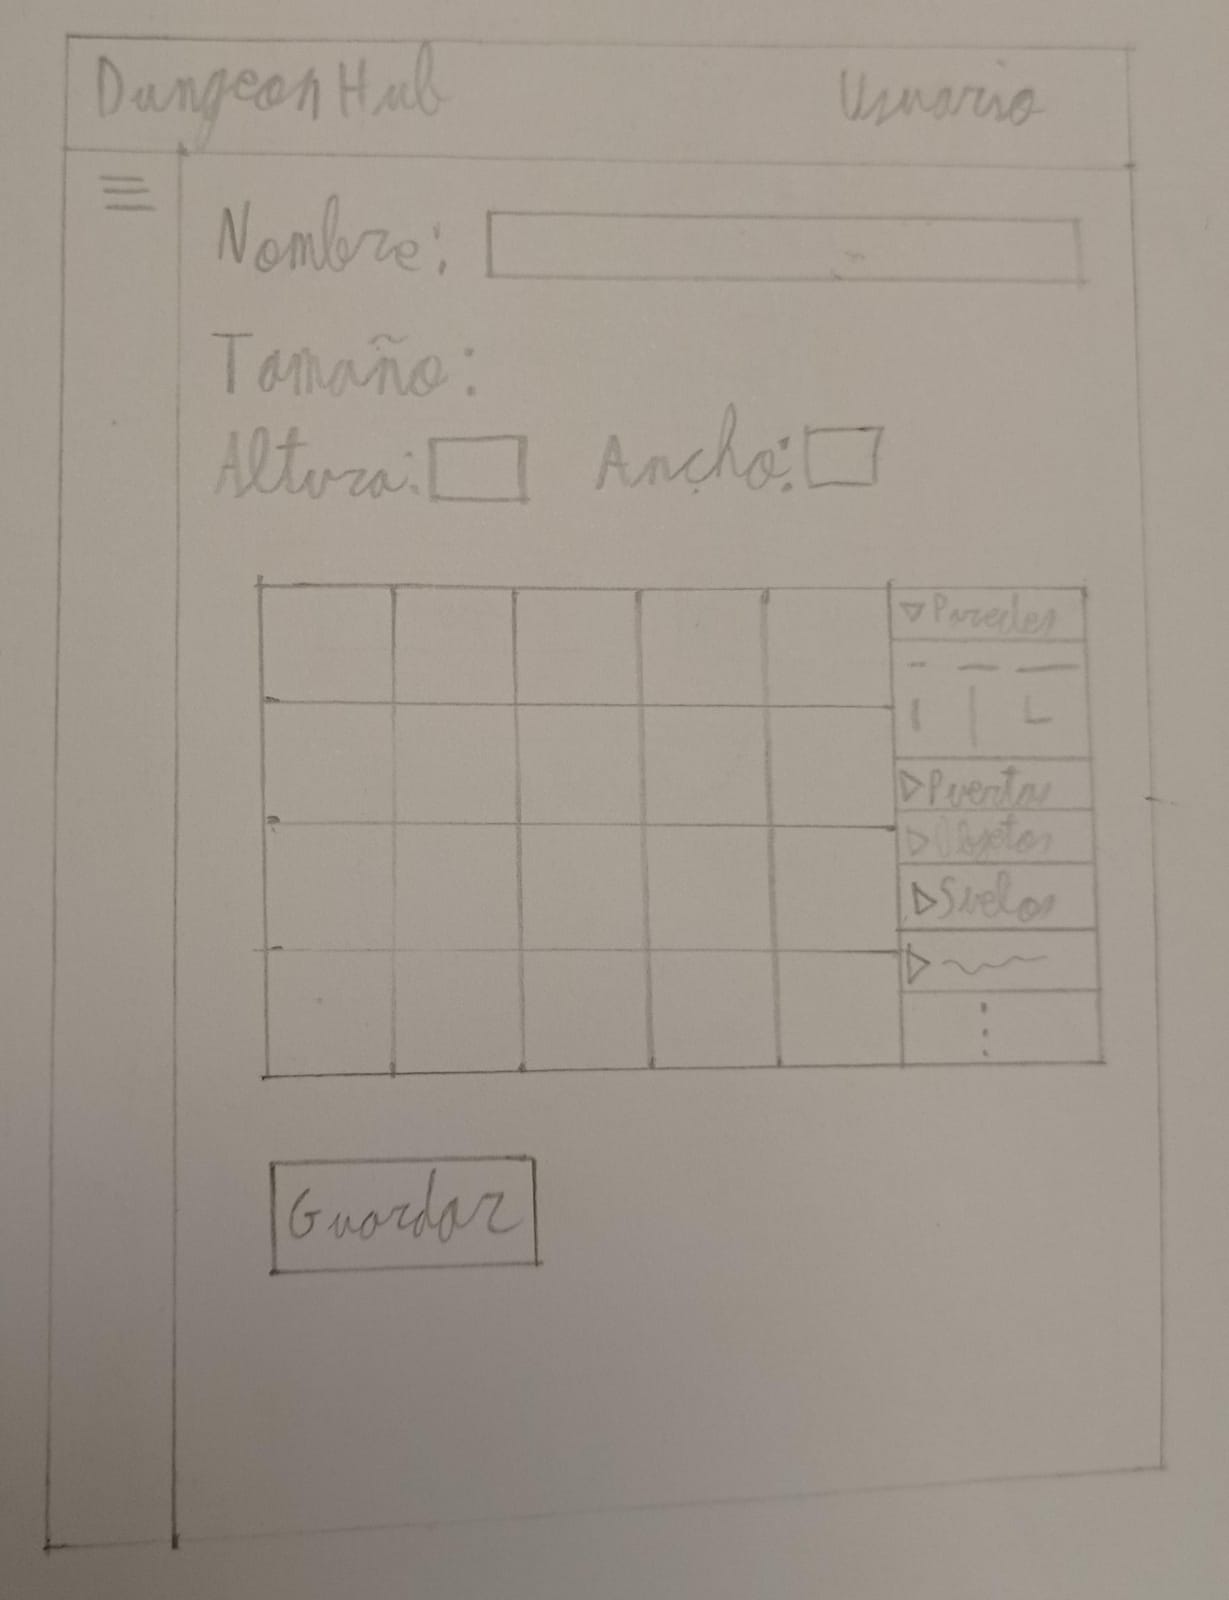 DungeonHub Usuario
Nombre:
Tamaño:
Altura: Ancho:
Paredes
Puertas
Objetos
Suelos
Guardar